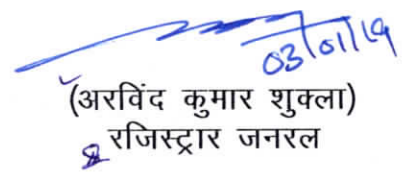 03/01/19
(अरविंद कुमार शुक्ला)
रजिस्ट्रार जनरल